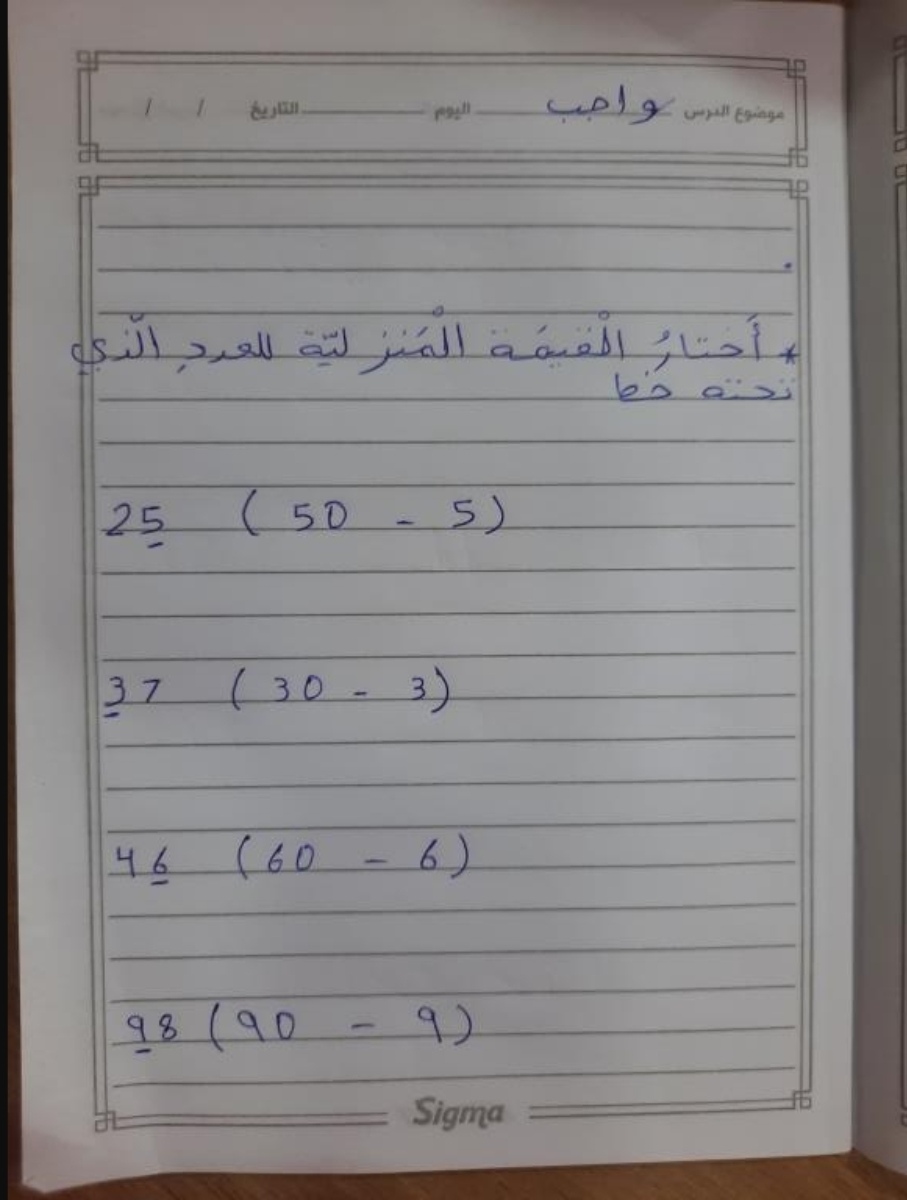 موضوع الدرس واجب اليوم التاريخ / /
* أَختارُ الْقيمَة الْمَنزليّة للعددِ الّذي
تحته خط
25 ( 50 - 5 )
37 ( 30 - 3 )
46 ( 60 - 6 )
98 ( 90 - 9 )
Sigma